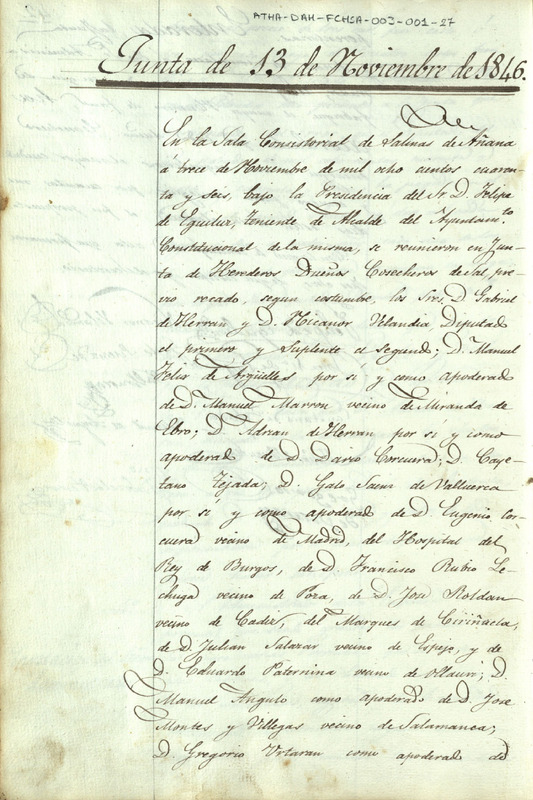 ATHA-DAH-FCHSA-003-001-27
Junta de 13 de Noviembre de 1846.
En la Sala Consistorial de Salinas de Añana
á trece de Noviembre de mil ocho cientos cuaren-
ta y seis, bajo la Presidencia del Sr. D. Felipe
de Eguiluz, teniente de Alcalde del Ayuntamto.
Constitucional de la misma, se reunieron en Jun-
ta de Herederos Dueños Cosecheros de Sal, pre-
vio recado, segun costumbre, los Sres. D. Gabriel
de Herran y D. Nicanor Velandia Diputado
el primero y Suplente el segundo; D. Manuel
Felix de Argüelles por sí y como apoderado
de D. Manuel Marron vecino de Miranda de
Ebro; D. Adrian de Herran por sí y como
apoderado de D. Dario Corcuera; D. Caye-
tano Tejada; D. Galo Saenz de Valluerca
por sí y como apoderado de D. Eugenio Cor-
cuera vecino de Madrid, del Hospital del
Rey de Burgos, de D. Francisco Rubio Le-
chuga vecino de Poza, de D. José Roldan
vecino de Cadiz, del Marques de Ciriñuela,
de D. Julian Salazar vecino de Espejo, y de
D. Eduardo Paternina vecino de Ollauri; D.
Manuel Angulo como apoderado de D. José
Montes y Villegas vecino de Salamanca;
D. Gregorio Urtaran como apoderado de